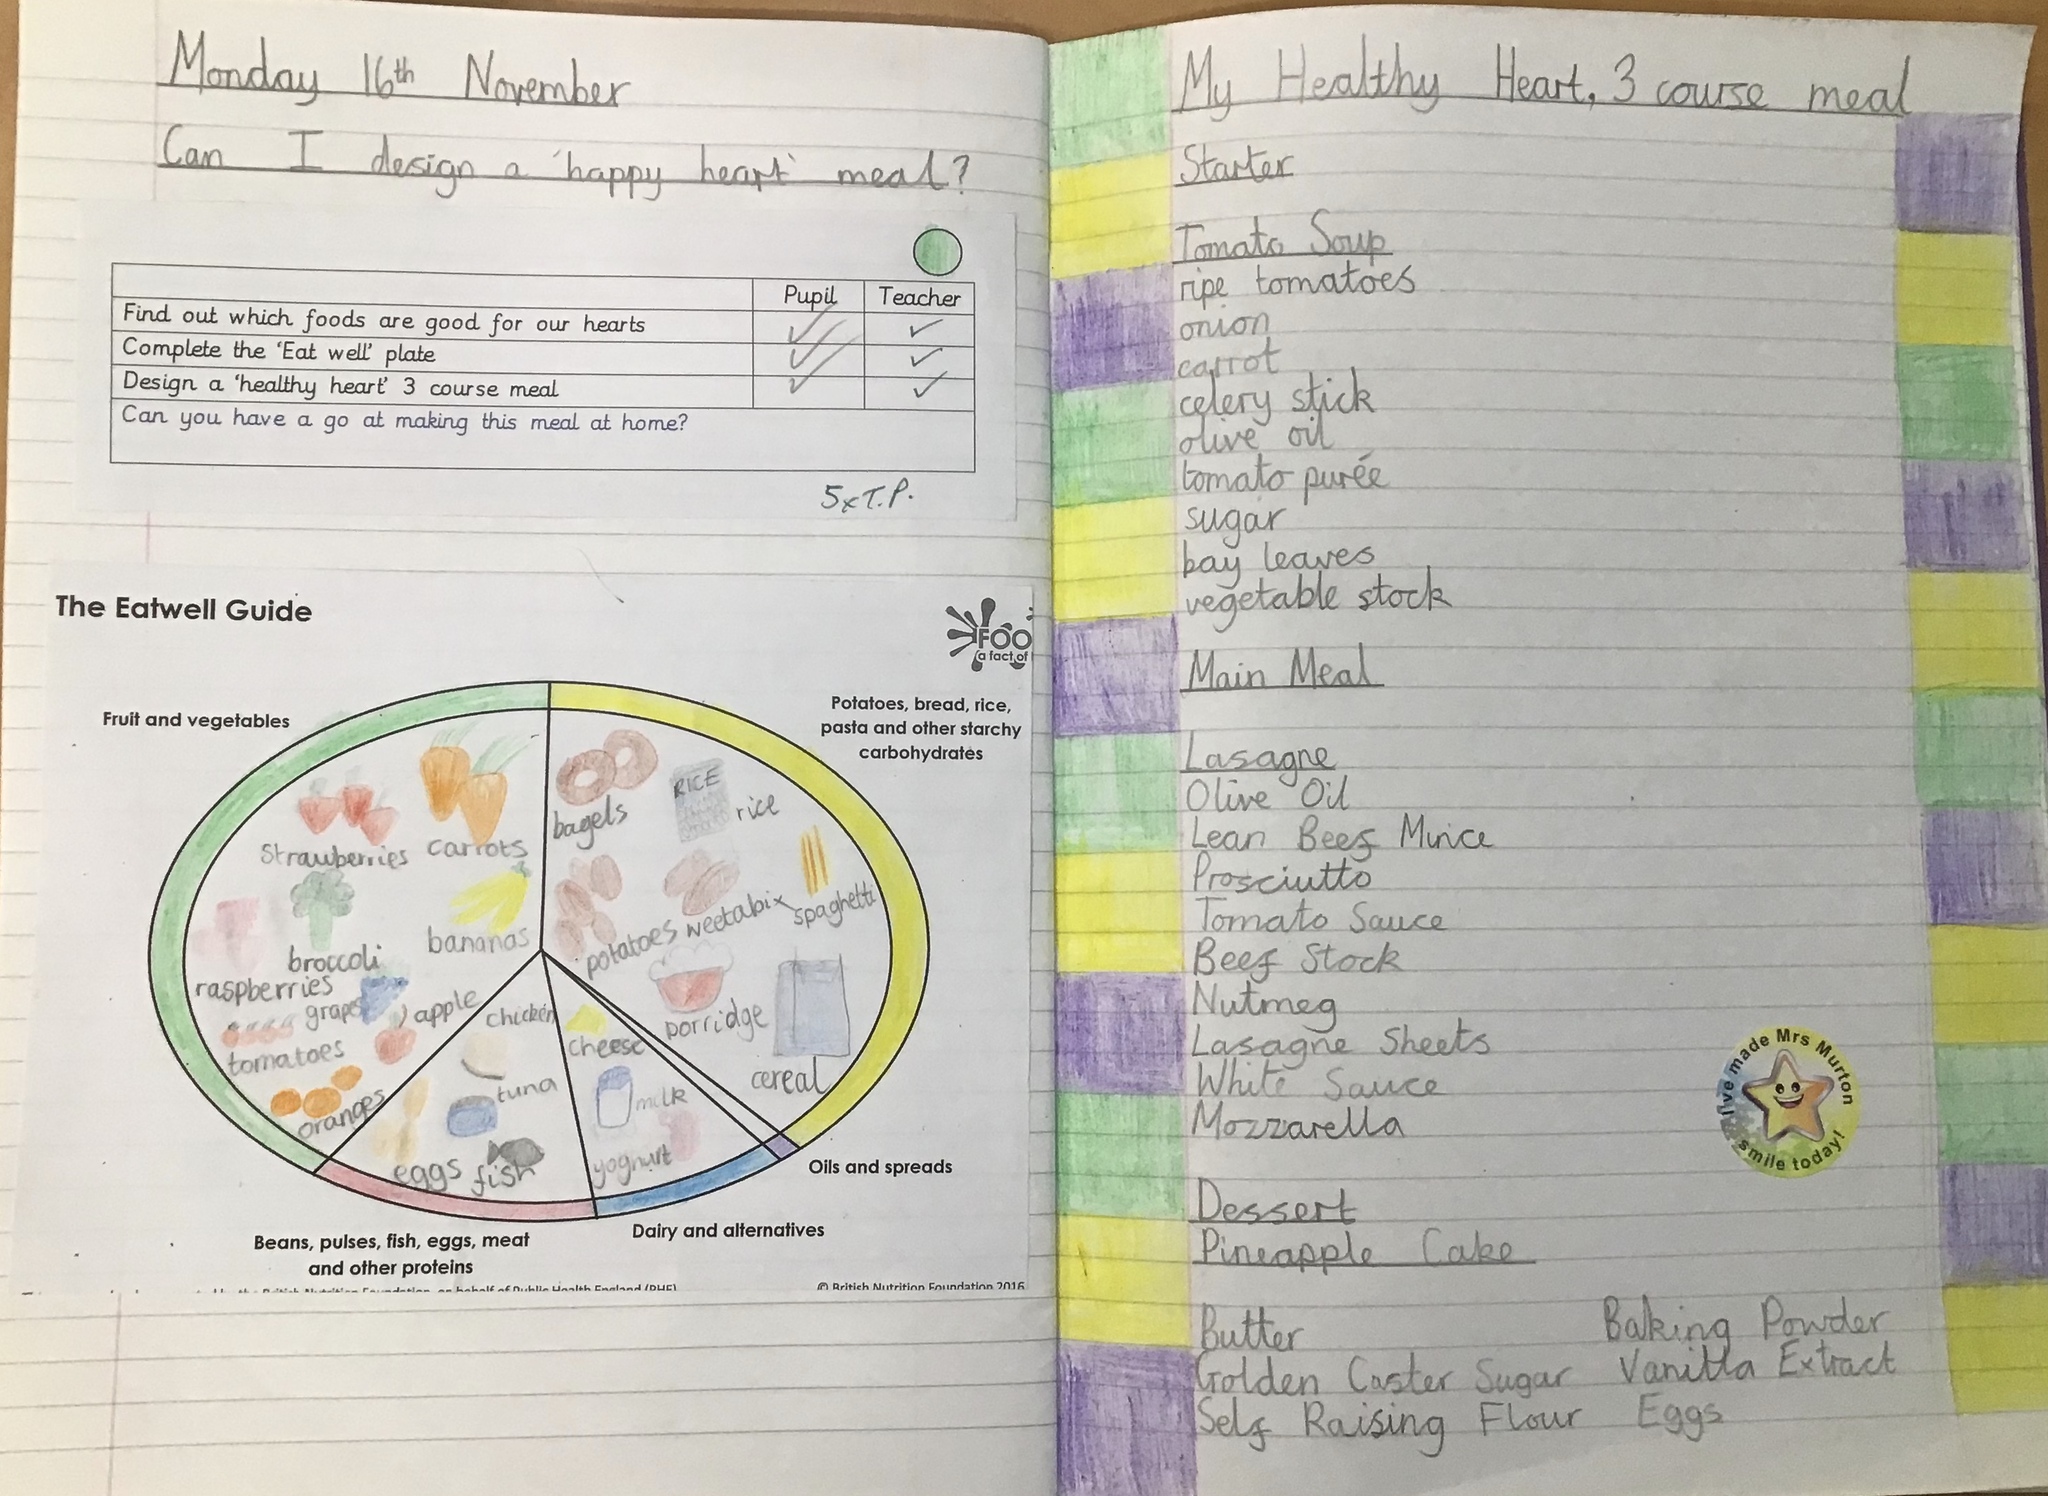 Monday 16th November
Can I design a 'happy heart' meal?
Pupil Teacher
Find out which foods are good for our hearts
Complete the 'Eat well' plate
Design a 'healthy heart' 3 course meal
Can you have a go at making this meal at home?
5xT.P.
The Eatwell Guide
FOO
a fact of
Fruit and vegetables
Potatoes, bread, rice,
pasta and other starchy
carbohydrates
Strawberries
carrots
broccoli
bananas
raspberries
grapes
apple
tomatoes
oranges
bagels
RICE
rice
potatoes
weetabix
spaghetti
porridge
cereal
chicken
tuna
eggs
fish
cheese
milk
yoghurt
Oils and spreads
Dairy and alternatives
Beans, pulses, fish, eggs, meat
and other proteins
British Nutrition Foundation, on behalf of Public Health England (PHE)
© British Nutrition Foundation 2016
My Healthy Heart, 3 course meal
Starter
Tomato Soup
ripe tomatoes
onion
carrot
celery stick
olive oil
tomato purée
sugar
bay leaves
vegetable stock
Main Meal
Lasagne
Olive Oil
Lean Beef Mince
Prosciutto
Tomato Sauce
Beef Stock
Nutmeg
Lasagne Sheets
White Sauce
Mozzarella
I've made Mrs Murton
smile today!
Dessert
Pineapple Cake
Butter Baking Powder
Golden Caster Sugar Vanilla Extract
Self Raising Flour Eggs